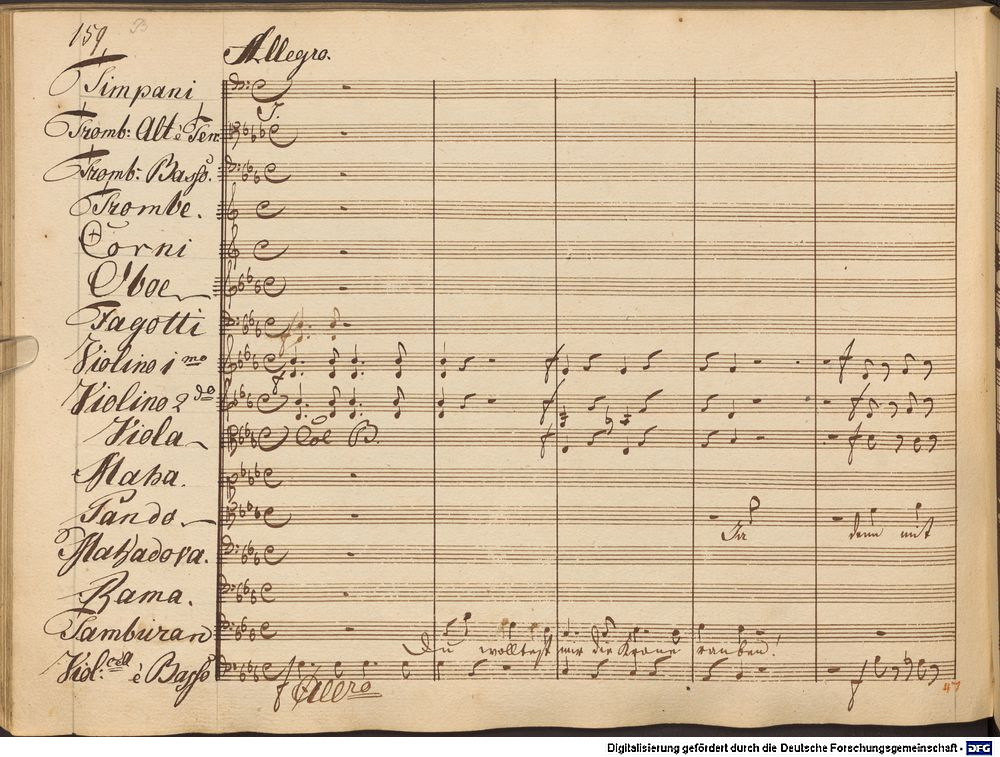 159
Allegro.
Timpani
Tromb: Alt è Ten:
Tromb: Basso.
Trombe.
Corni
Oboe
Fagotti
Violino 1mo
Violino 2do
Viola
Col B.
Maha.
Pando
Ja denn mit
Mahadova.
Rama.
Tamburan
Du wolltest mir die Krone rauben!
Viol:cell è Basso
Allro
47
Digitalisierung gefördert durch die Deutsche Forschungsgemeinschaft - DFG